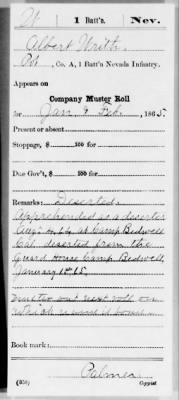 W | 1 Batt'n. | Nev.
Albert Writh
Pvt, Co. A, 1 Batt'n Nevada Infantry.
Appears on
Company Muster Roll
for Jan & Feb, 1865.
Present or absent
Stoppage, $ 100 for
Due Gov't, $ 100 for
Remarks: Deserted.
Apprehended as a deserter
Aug. 4, 64, at Camp Bidwell
Cal. deserted from the
Guard House Camp Bidwell,
January 1st 65.
next roll on
which named is borne
Book mark:
Palmer
(358) Copyist